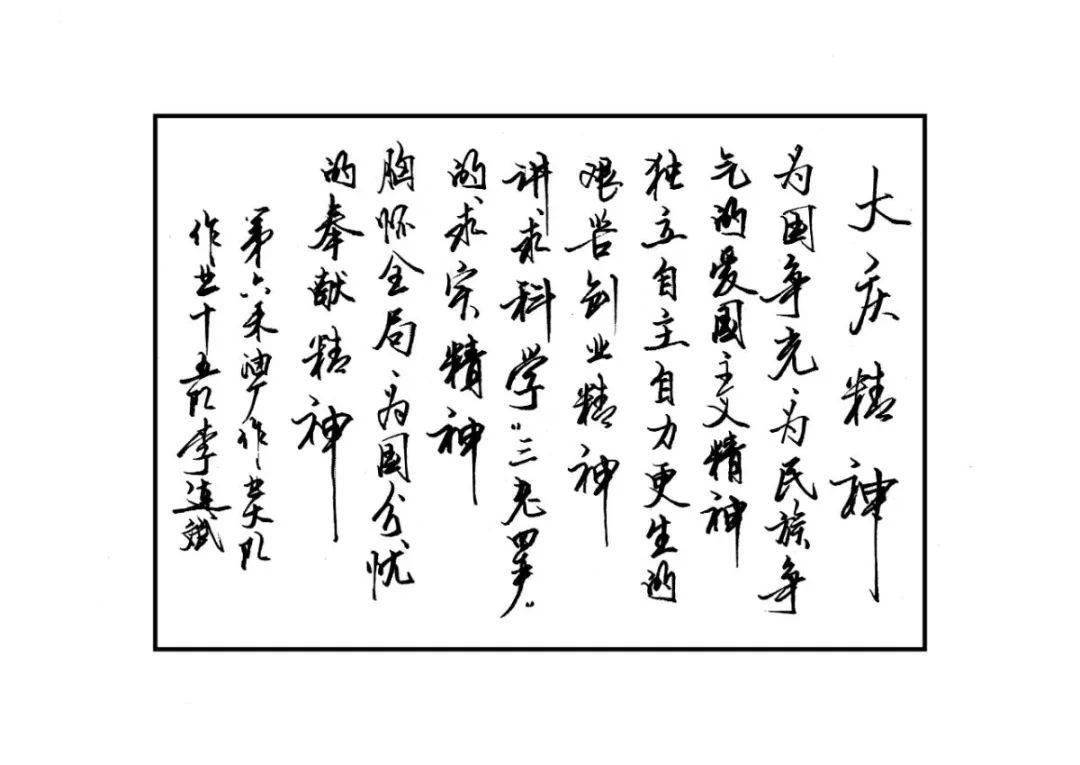 大庆精神
为国争光、为民族争
气的爱国主义精神
独立自主自力更生的
艰苦创业精神
讲求科学“三老四严”
的求实精神
胸怀全局、为国分忧
的奉献精神
第六采油厂作业大队
作业十五队李连斌